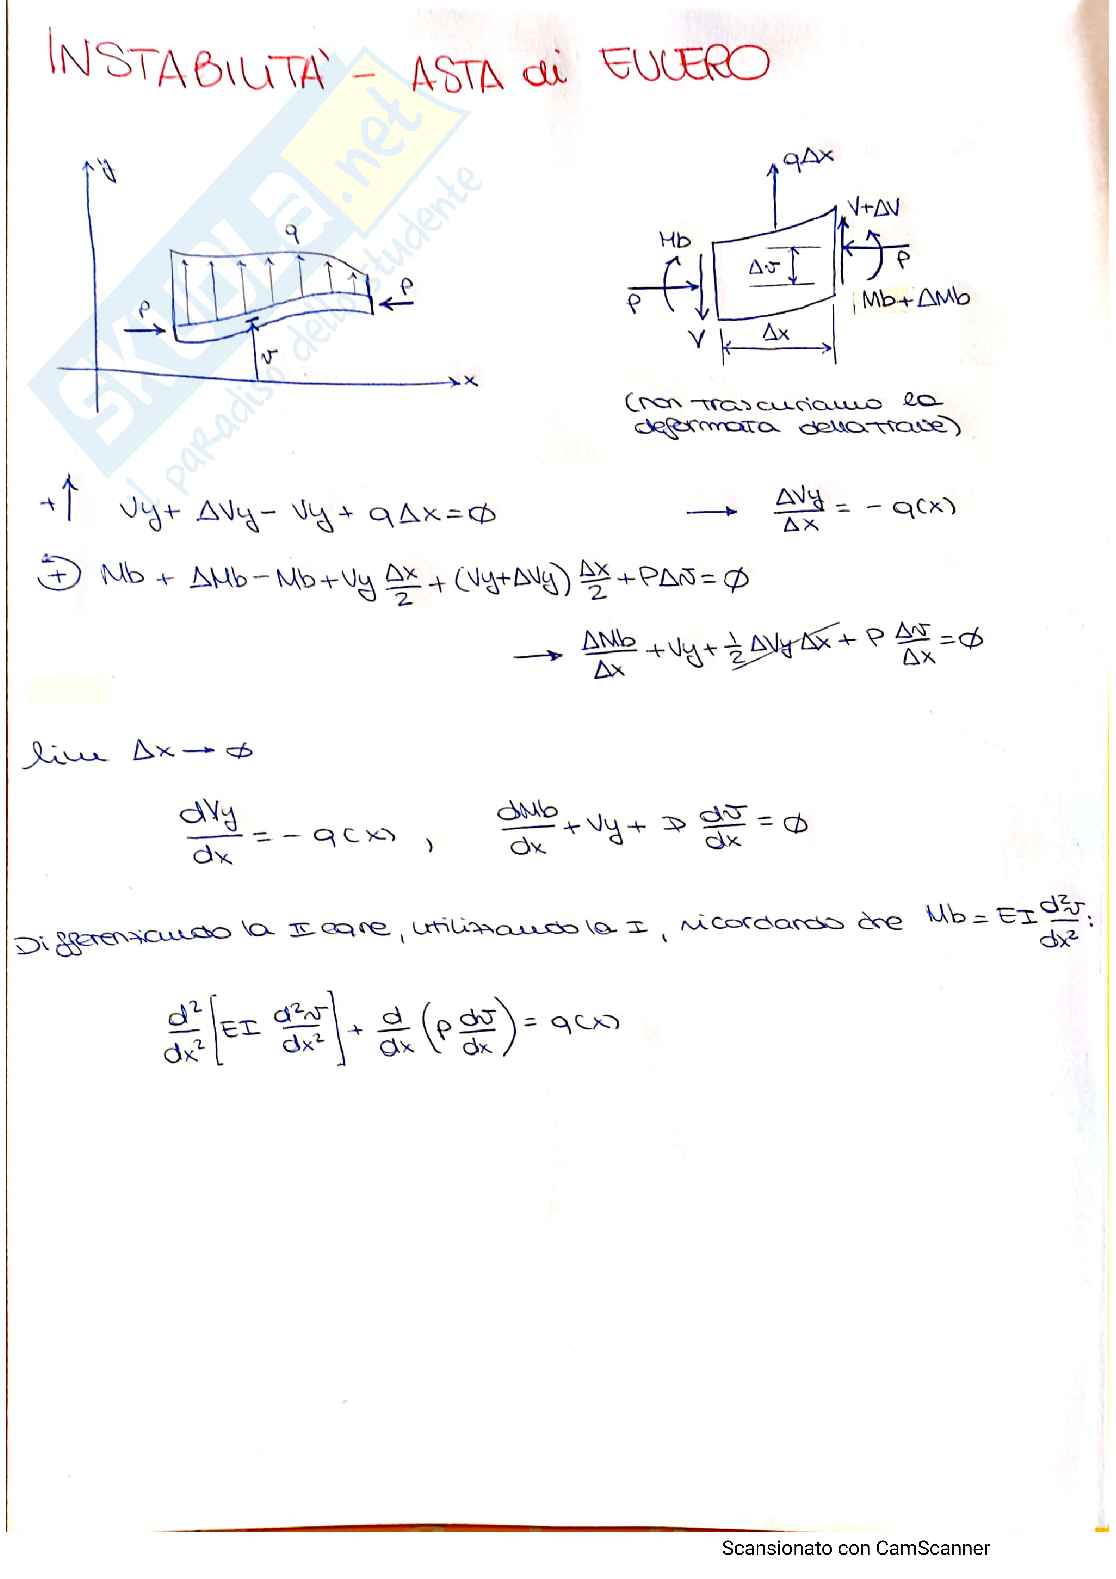 INSTABILITÀ - ASTA di EULERO
y
q
P
P
v
x
SKUOLA.net
il paradiso dello studente
qΔx
V+ΔV
Mb
Δv
P
P
Mb + ΔMb
V
Δx
(non trascuriamo la
deformata della trave)
+↑ Vy + ΔVy - Vy + qΔx = ∅ → ΔVy/Δx = - q(x)
+ Mb + ΔMb - Mb + Vy Δx/2 + (Vy+ΔVy) Δx/2 + PΔv = ∅
→ ΔMb/Δx + Vy + 1/2 ΔVyΔx + P Δv/Δx = ∅
lim Δx → ∅
dVy/dx = - q(x) , dMb/dx + Vy + P dv/dx = ∅
Differenziando la II eqne, utilizzando la I, ricordando che Mb = EI d²v/dx² :
d²/dx² [EI d²v/dx²] + d/dx (P dv/dx) = q(x)
Scansionato con CamScanner